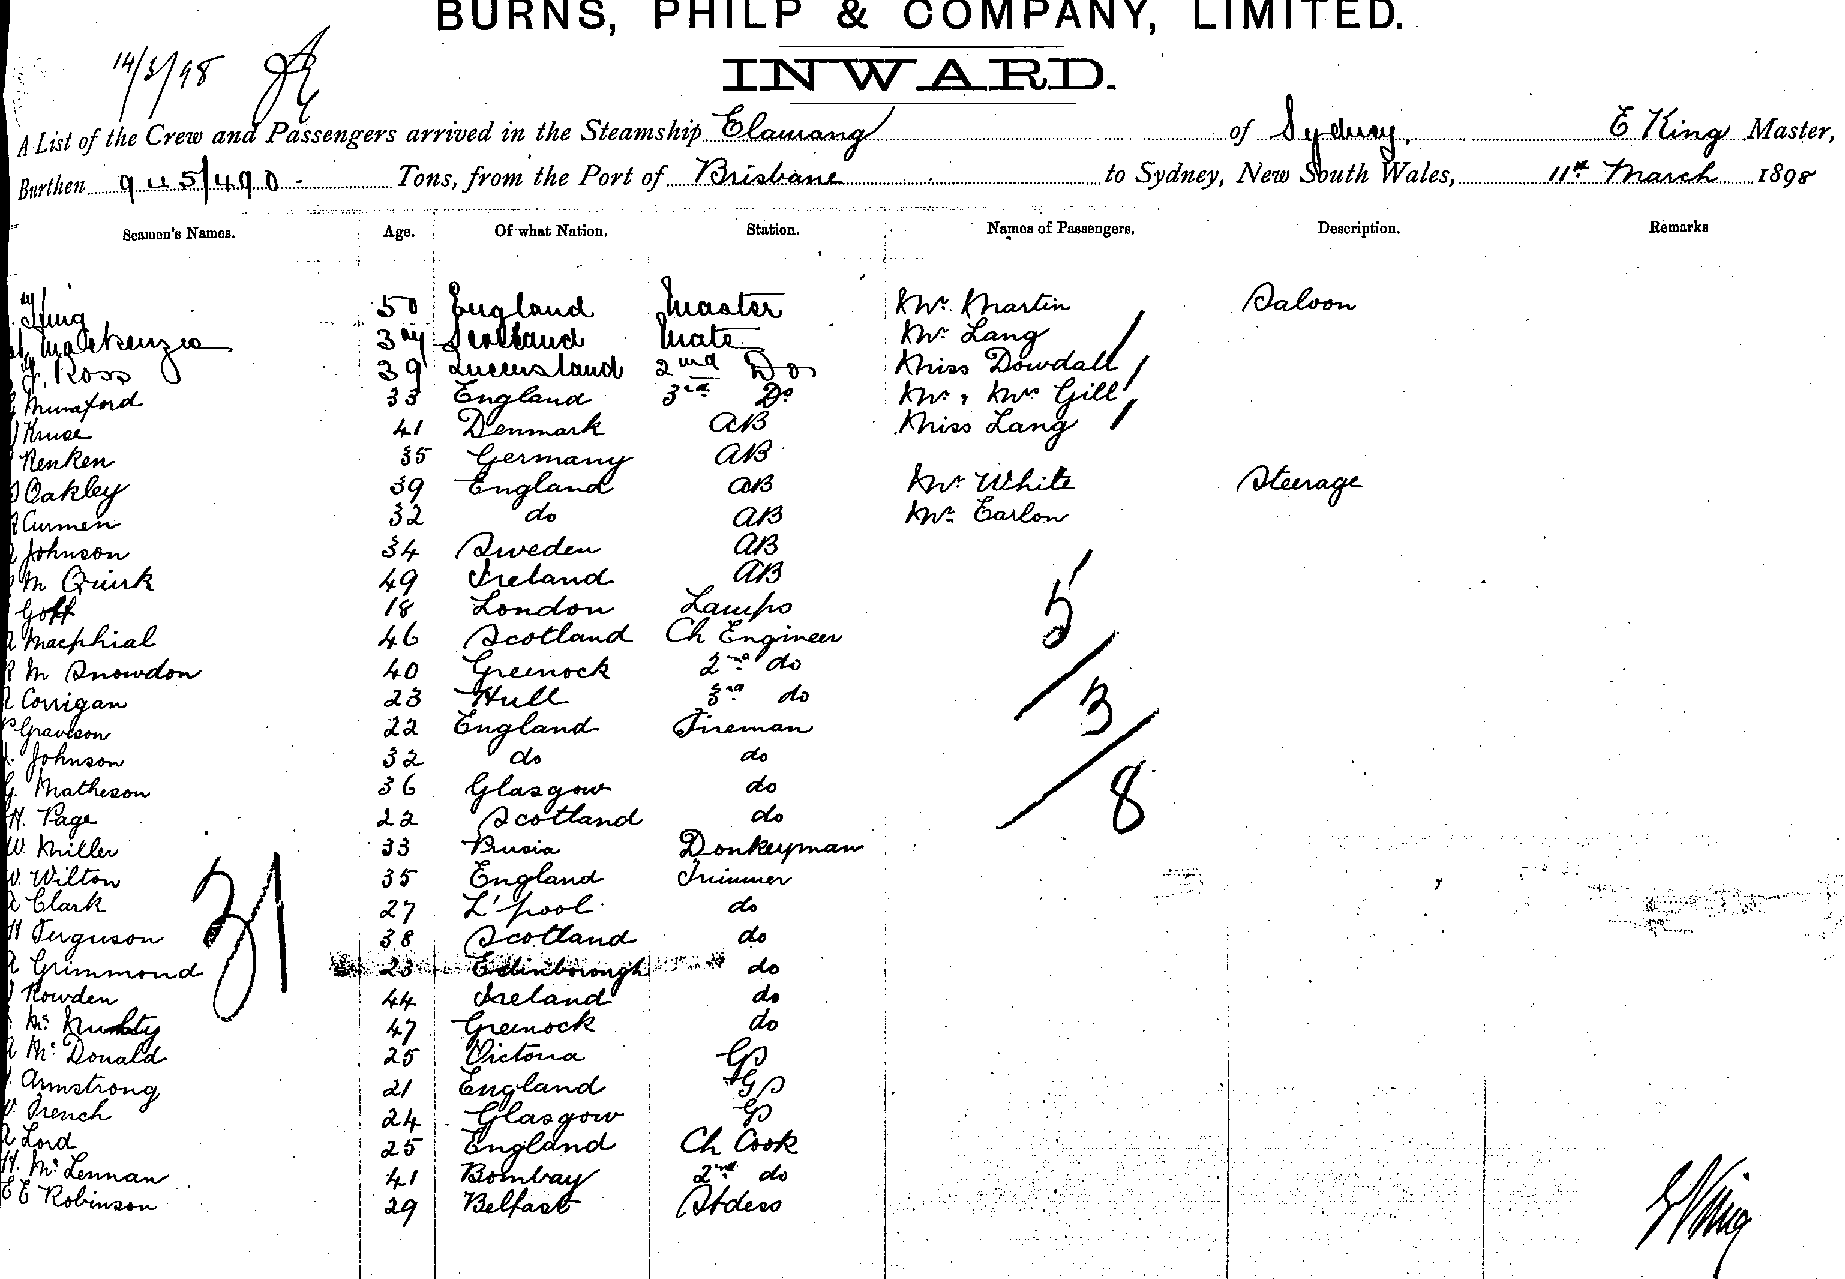 BURNS, PHILP & COMPANY, LIMITED.
INWARD.
14/3/98
A List of the Crew and Passengers arrived in the Steamship Elamang of Sydney, E King Master,
Burthen 945/490 Tons, from the Port of Brisbane to Sydney, New South Wales, 11th March 1898
Seamen's Names. Age. Of what Nation. Station. Names of Passengers. Description. Remarks
King 50 England Master Mr. Martin Saloon
Mackenzie Scotland Mate Mr Lang
J. Ross 39 Queensland 2nd Do Miss Dowdall
Mumford 33 England 3rd Do Mr & Mrs Gill
Kruse 41 Denmark AB Miss Lang
Renken 35 Germany AB
Oakley 39 England AB Mr White Steerage
Curmen 32 do AB Mr Earlon
Johnson 34 Sweden AB
M Quirk 49 Ireland AB
Goff 18 London Lamps
Macphial 46 Scotland Ch Engineer
R M Snowdon 40 Greenock 2nd do
Corrigan 23 Hull 3rd do
Graveson 22 England Fireman
Johnson 32 do do
G. Matheson 36 Glasgow do
H. Page 22 Scotland do
W. Miller 33 Donkeyman
W. Wilton 35 England Trimmer
A Clark 27 L'pool do
H Ferguson 38 Scotland do
A Grimmond 23 Edinborough do
J Rowden 44 Ireland do
Mc 47 Greenock do
A McDonald 25 Victoria GS
Armstrong 21 England GS
W. French 24 Glasgow GS
A Lord 25 England Ch Cook
H. McLennan 41 Bombay 2nd do
E E Robinson 29 Belfast Stdess
5
/3
/8
31
E King